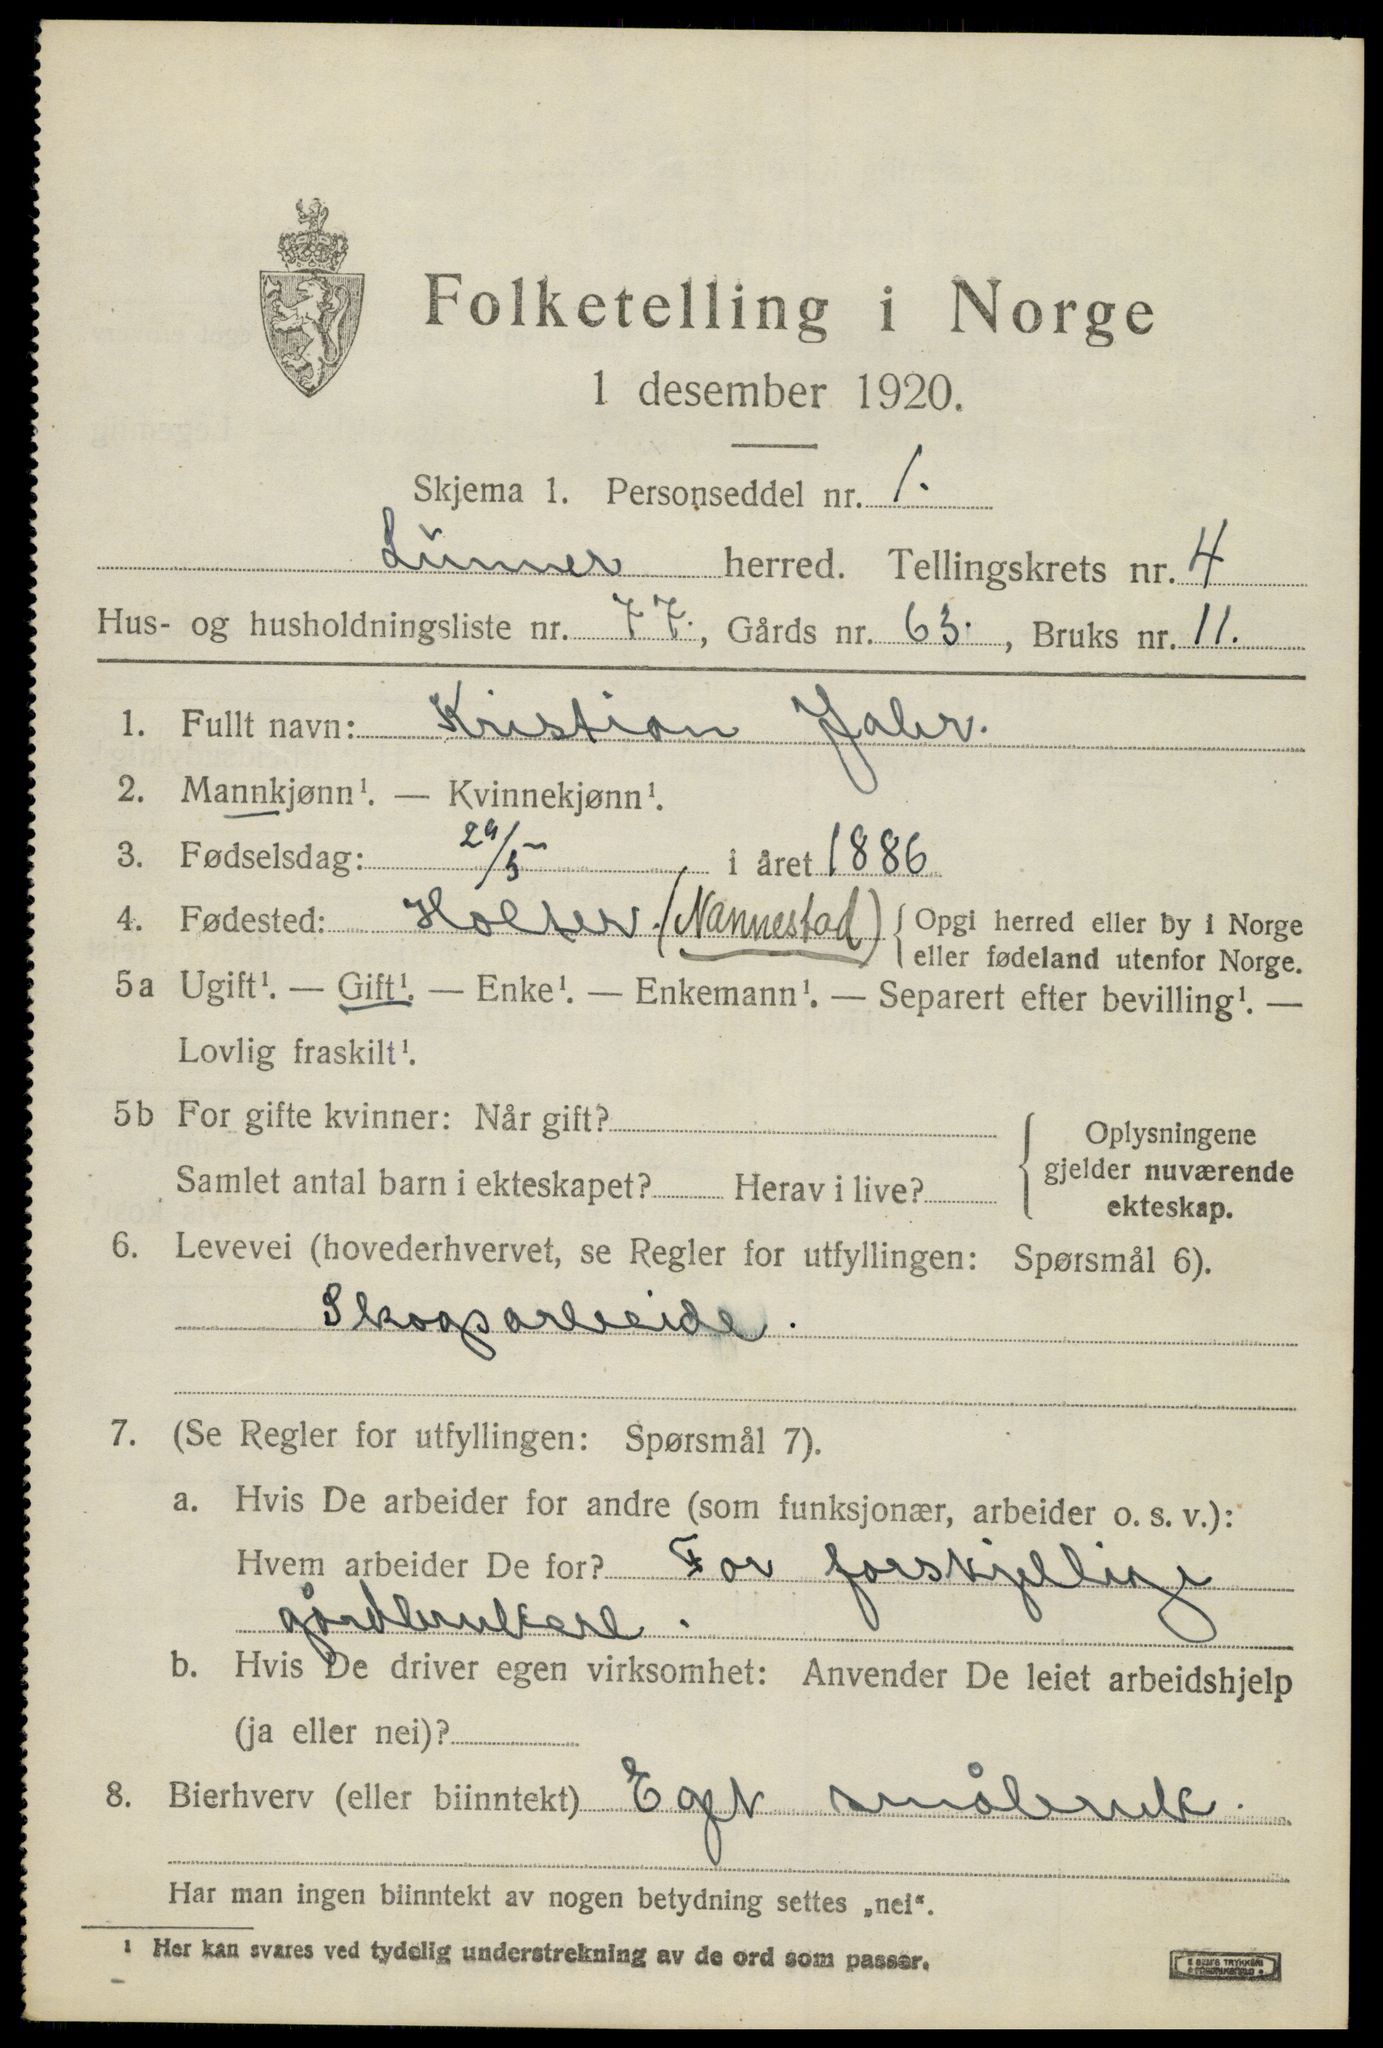 Folketelling i Norge
1 desember 1920.
Skjema 1. Personseddel nr. 1.
Lunner herred. Tellingskrets nr. 4
Hus- og husholdningsliste nr. 77., Gårds nr. 63., Bruks nr. 11.
1. Fullt navn: Kristian Jahr.
2. Mannkjønn¹. — Kvinnekjønn¹.
3. Fødselsdag: 29/5 i året 1886
4. Fødested: Holter. (Nannestad) { Opgi herred eller by i Norge
eller fødeland utenfor Norge.
5a Ugift¹. — Gift¹. — Enke¹. — Enkemann¹. — Separert efter bevilling¹. —
Lovlig fraskilt¹.
5b For gifte kvinner: Når gift?
Samlet antal barn i ekteskapet? Herav i live?
{ Oplysningene
gjelder nuværende
ekteskap.
6. Levevei (hovederhvervet, se Regler for utfyllingen: Spørsmål 6).
Skogsarbeide.
7. (Se Regler for utfyllingen: Spørsmål 7).
a. Hvis De arbeider for andre (som funksjonær, arbeider o. s. v.):
Hvem arbeider De for? For forskjellige
gårdbrukere.
b. Hvis De driver egen virksomhet: Anvender De leiet arbeidshjelp
(ja eller nei)?
8. Bierhverv (eller biinntekt) Eget småbruk.
Har man ingen biinntekt av nogen betydning settes „nei“.
¹ Her kan svares ved tydelig understrekning av de ord som passer.